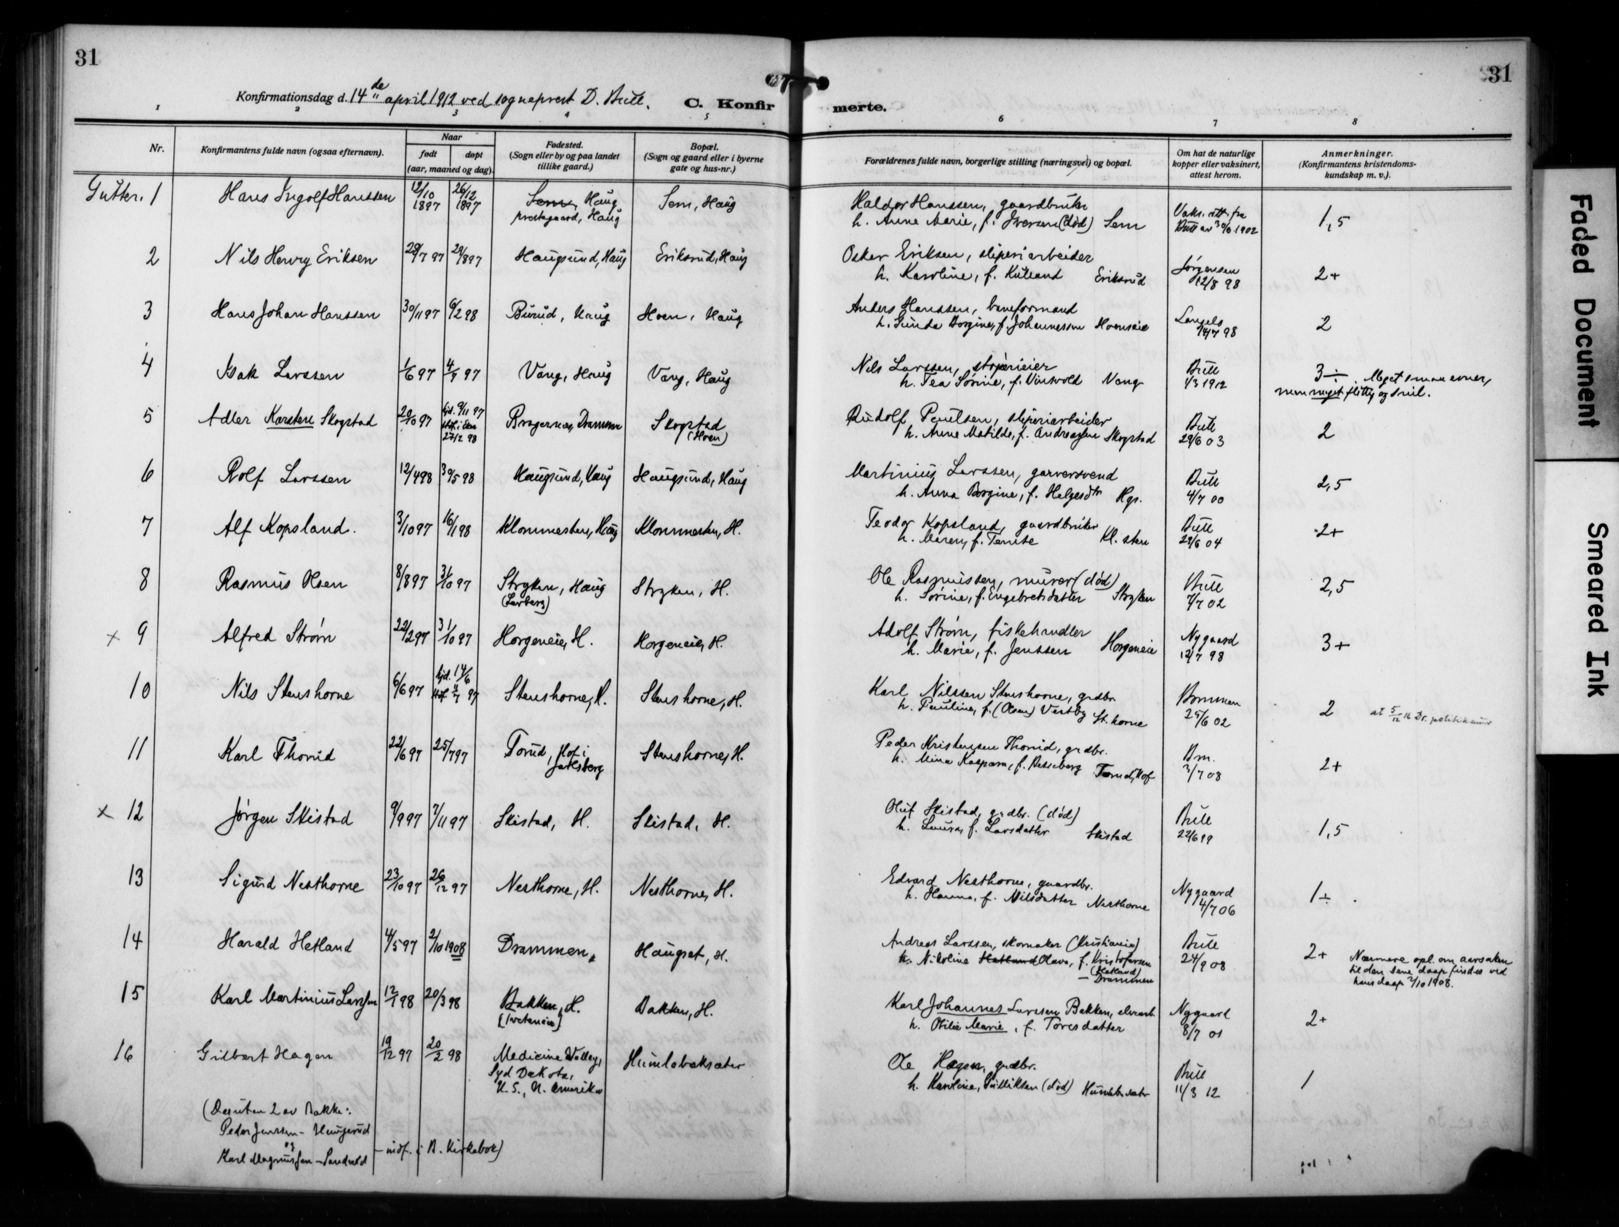 31
31
Konfirmationsdag d. 14de april 1912 ved sogneprest D. Bull.
C. Konfirmerte.
1 2 3 4 5 6 7 8
Nr.
Konfirmantens fulde navn (ogsaa efternavn).
Naar
født døpt
(aar, maaned og dag).
Fødested.
(Sogn eller by og paa landet
tillike gaard.)
Bopæl.
(Sogn og gaard eller i byerne
gate og hus-nr.)
Forældrenes fulde navn, borgerlige stilling (næringsvei) og bopæl.
Om hat de naturlige
kopper eller vaksinert,
attest herom.
Anmerkninger.
(Konfirmantens kristendoms-
kundskap m. v.)
Gutter. 1 Hans Ingolf Hanssen 12/10 1897 26/12 1897 Sem, Haug Sem, Haug Haldor Hanssen, gaardbruker 1,5
prestegaard, Haug h. Anne Marie, f. Iversen (død) Sem
2 Nils Henry Eriksen 29/7 97 29/8 97 Haugsund, Haug Eriksrud, Haug Oskar Eriksen, sliperiarbeider Jørgensen 2+
h. Karoline, f. Eriksrud 12/8 98
3 Hans Johan Hanssen 30/11 97 6/2 98 Burud, Haug Hoen, Haug Anders Hanssen, baneformand 2
h. Gunda Borgine, f. Johannessen Hoenseie 14/7 98
4 Isak Larssen 1/6 97 97 Vang, Haug Vang, Haug Nils Larssen, Bull 3÷ Meget smaa evner,
h. Tea Sørine, f. Vang 1/3 1912 men meget flittig og snil.
5 Adler Karstens Skogstad 29/10 97 hjd. 9/11 97 Bragernes, Drammen Skogstad Rudolf Paulsen, sliperiarbeider Bull 2
27/2 98 (Hoen) h. Anne Matilde, f. Andreassen Skogstad 29/6 03
6 Rolf Larssen 12/4 98 30/5 98 Haugsund, Haug Haugsund, Haug Martinius Larssen, garversvend Bull 2,5
h. Anna Borgine, f. Helgesdtr Hgs. 4/7 00
7 Alf Kopsland. 3/10 97 16/1 98 Klommesten, Haug Klommesten, H. Teodor Kopsland, gaardbruker Bull 2+
h. Maren, f. Kl. sten 29/6 04
8 Rasmus Olsen 8/8 97 31/10 97 Stryken, Haug Stryken, H. Ole Rasmussen, murer (død) Bull 2,5
h. Sørine, f. Engebretsdatter Stryken 7/7 02
x 9 Alfred Strøm 22/2 97 31/10 97 Horgeneie, H. Horgeneie, H. Adolf Strøm, fiskehandler Nygaard 3+
h. Marie, f. Jenssen Horgeneie 12/7 98
10 Nils Stenshorne 6/6 97 hjd. 14/6 97 Stenshorne, H. Stenshorne, H. Karl Nilssen Stenshorne, grdbr. 2
h. Pauline, f. (Olsen) Vestby St.horne 25/6 02
11 Karl Thorud 22/6 97 25/7 97 Torud, Hof i Stenshorne, H. Peder Kristensen Thorud, grdbr. 2+
Jarlsberg h. Mina Kaspara, f. Torud, Hof 3/7 08
x 12 Jørgen Skistad 9/9 97 7/11 97 Skistad, H. Skistad, H. Oluf Skistad, grdbr. (død) Bull 1,5
h. Laura, f. Larsdatter Skistad 22/6 99
13 Sigurd Nesthorne 23/10 97 26/12 97 Nesthorne, H. Nesthorne, H. Edvard Nesthorne, gaardbr. Nygaard 1÷
h. Hanna, f. Nilsdatter Nesthorne 4/7 06
14 Harald Hetland 4/5 97 2/10 1908 Drammen, Haugset, H. Andreas Larssen, skomaker (Kristiania) Bull 2+ Nærmere opl. om aarsaken
h. Nikoline Hetland Olava, f. Kristofersen 24/9 08 til den sene daap findes ved
(Hetland) – Drammen hans daap 2/10 1908.
15 Karl Martinius Larssen 12/1 98 20/3 98 Bakken, H. Bakken, H. Karl Johannes Larssen Bakken, Nygaard 2+
h. Otilie Marie, f. Toresdatter 8/7 01
16 Gilbert Hagen 19/12 97 20/2 98 Medicine Valley, Humlebæksæter Ole Hagen, grdbr. Bull 1
Syd Dakota, h. Karoline, (død) 11/3 12
U. S., N. Amerika
(Desuten 2 av Bakke:
Peder Jenssen – Haugerud
og – indf. i B. Kirkebok)
Karl Magnussen –
Faded Document
Smeared Ink